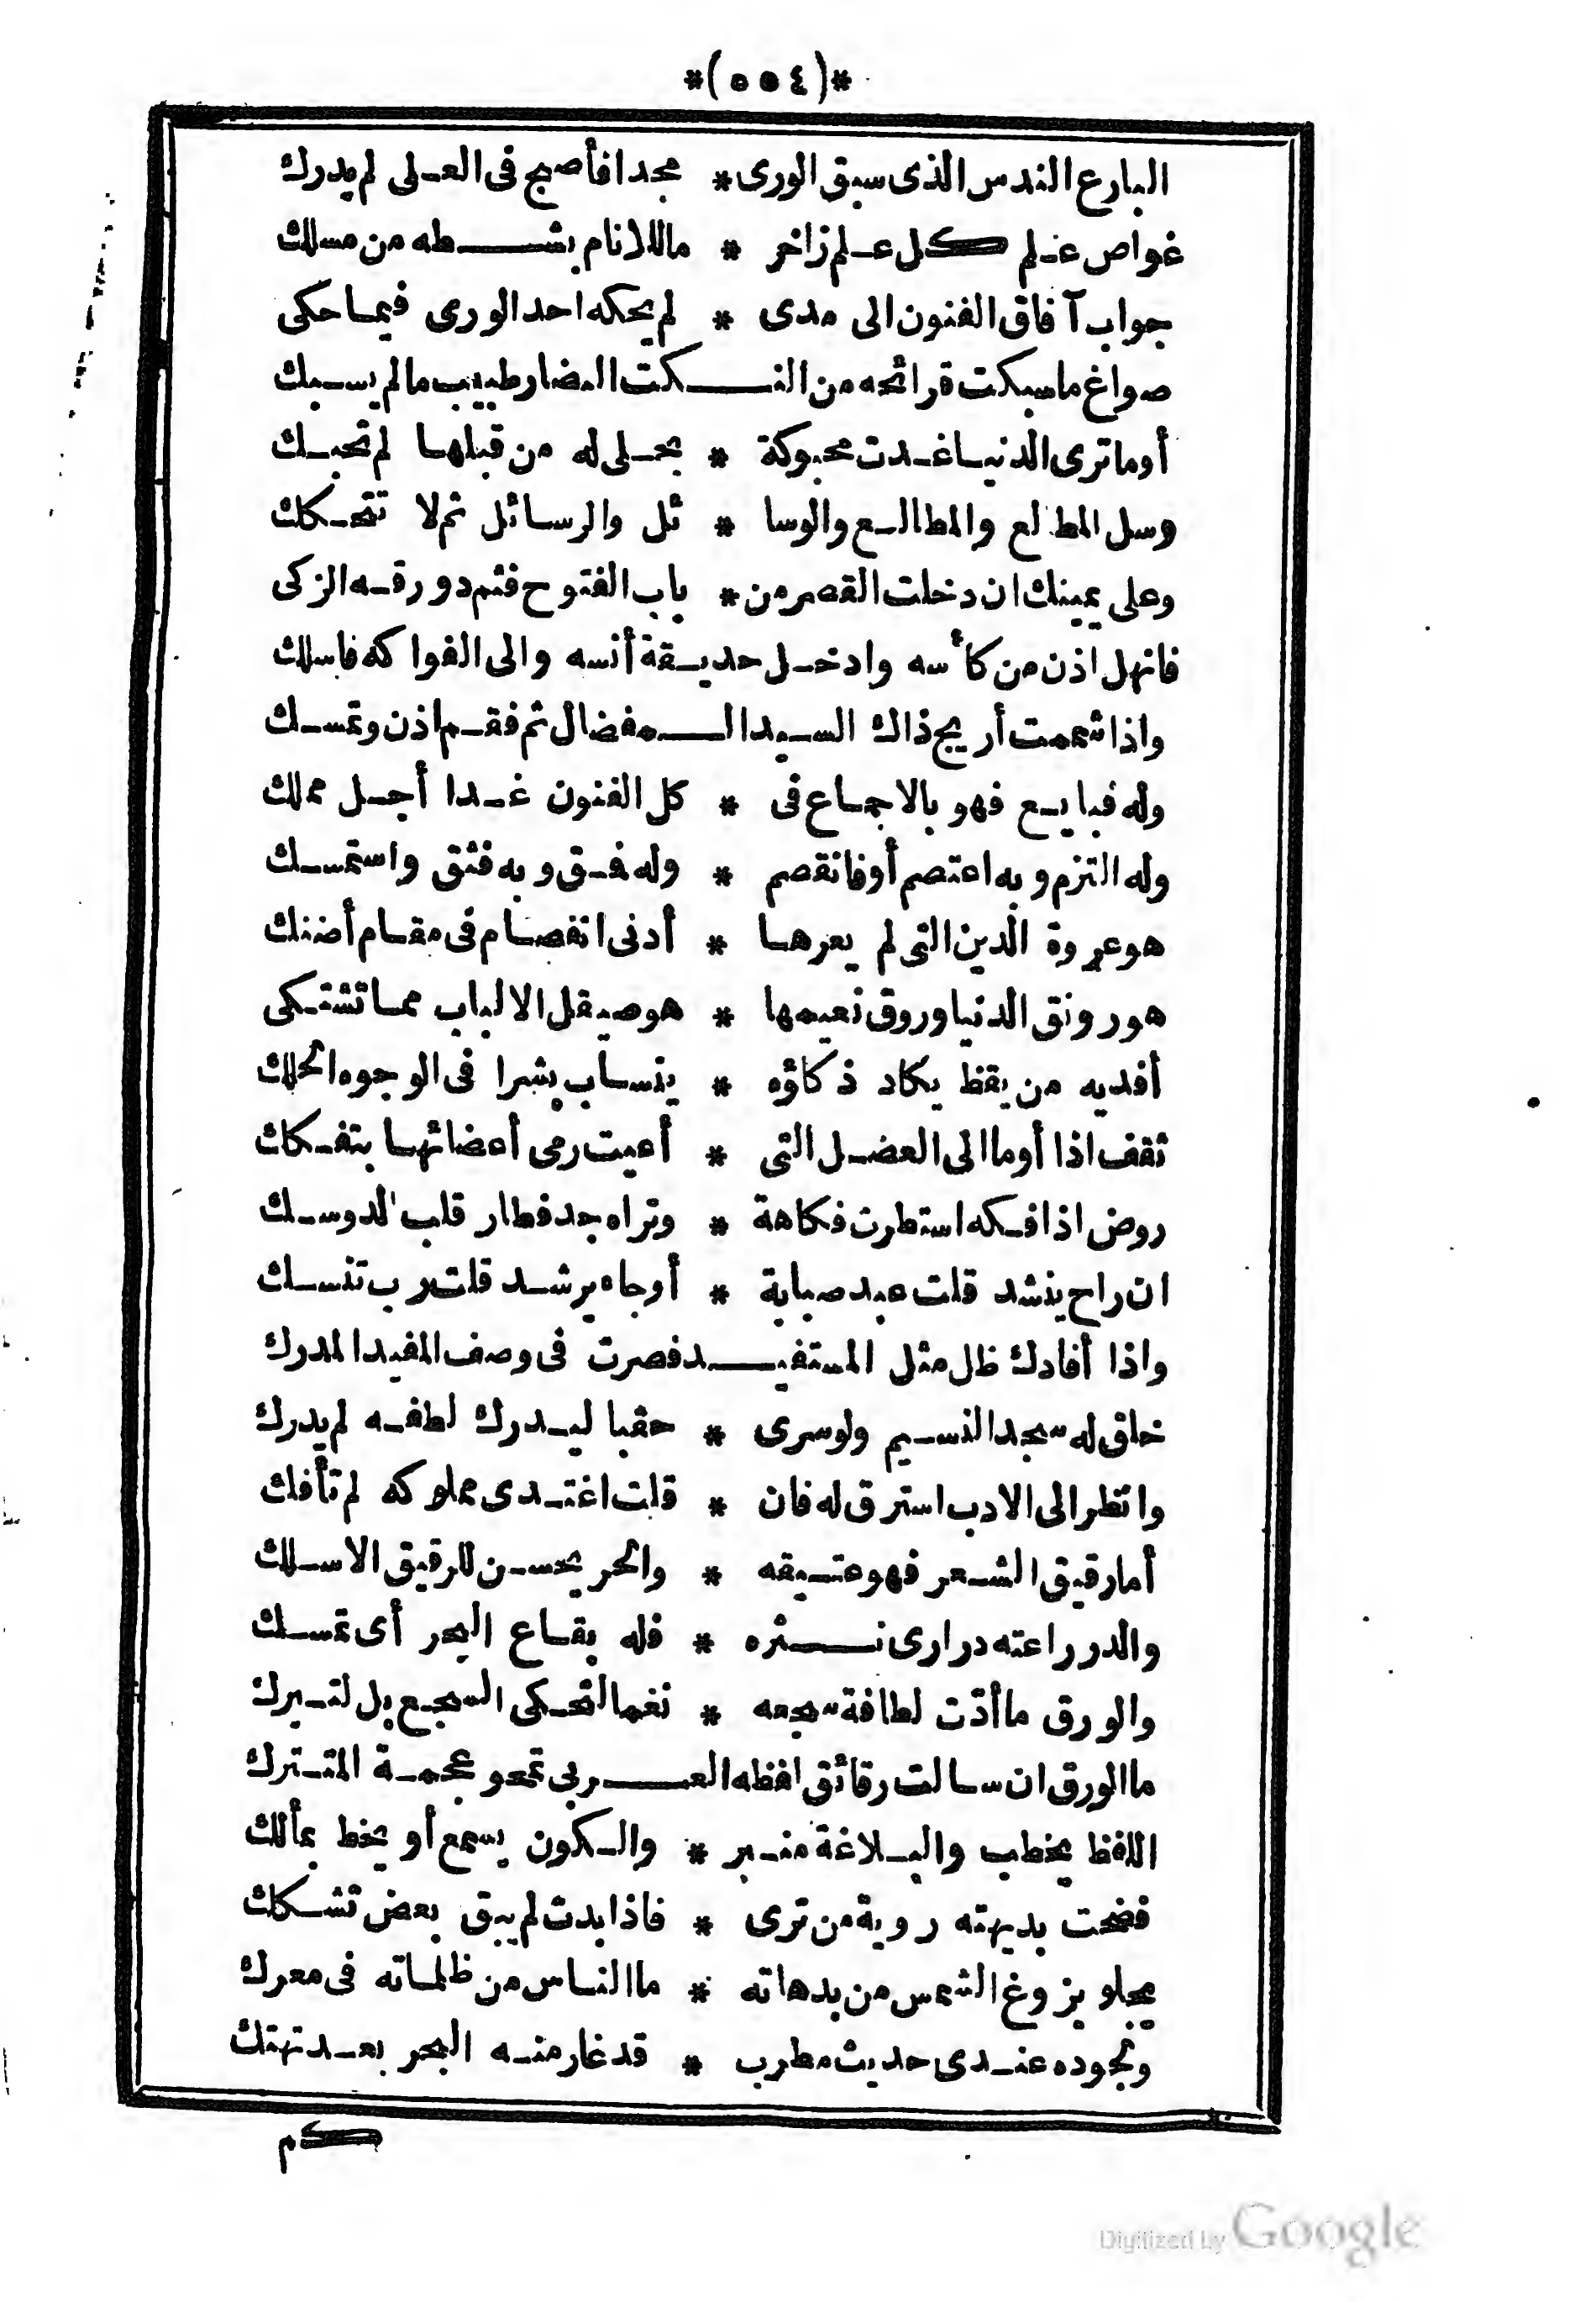 *(٥٥٤)*
البارع الندس الذى سبق الورى * مجدا فأصبح فى العلى لم يدرك
غواص علم كل علم زاخر * ما للانام بشطه من مسلك
جواب آفاق الفنون الى مدى * لم يحكه احد الورى فيما حكى
صواغ ما سبكت قرائحه من النكت النضار طبيب ما لم يسبك
أوما ترى الدنيا غدت محبوكة * بحلى له من قبلها لم تحبك
وسل المطلع والمطالع والوسا * ئل والرسائل ثم لا تتحكك
وعلى يمينك ان دخلت القصر من * باب الفتوح فثم دورقه الزكى
فانهل اذن من كأسه وادخل حديقة أنسه والى الفواكه فاسلك
واذا شممت أريج ذاك السيد المفضال ثم فقم اذن وتمسك
وله فبايع فهو بالاجماع فى * كل الفنون غدا أجل مملك
وله التزم وبه اعتصم أوفانقصم * وله فق وبه فثق واستمسك
هو عروة الدين التى لم يعرها * أدنى انفصام فى مقام أضنك
هو رونق الدنيا وروق نعيمها * هو صيقل الالباب مما تشتكى
أفديه من يقظ يكاد ذكاؤه * ينساب بشرا فى الوجوه الحلك
ثقف اذا أوما الى العضل التى * أعيت رمى أعضائها بتفكك
روض اذا فكه استطرت فكاهة * وتراه جد فطار قلب الدوسك
ان راح ينشد قلت عبد صبابة * أوجاه يرشد قلت رب تنسك
واذا أفادك ظل مثل المستفيد فصرت فى وصف المفيد المدرك
خلق له سجد النسيم ولو سرى * حقبا ليدرك لطفه لم يدرك
وانظر الى الادب استرق له فان * قلت اغتدى مملوكه لم تأفك
أما رقيق الشعر فهو عتيقه * والحر يحسن للرقيق الاسلك
والدر راعته درارى نثره * فله بقاع البحر أى تمسك
والورق ما أدّت لطافة سجعه * نغما لتحكى السجع بل لتبرك
ما الورق ان سالت رقائق لفظه العربى تمحو عجمة المتترك
اللفظ يخطب والبلاغة منبر * والكون يسمع أو يخط بمألك
فضحت بديهته روية من ترى * فاذا بدت لم يبق بعض تشكك
يجلو بزوغ الشمس من بدهاته * ما الناس من ظلماته فى معرك
ولجوده عندى حديث مطرب * قد غار منه البحر بعد تهتك
كم
Digitized by Google